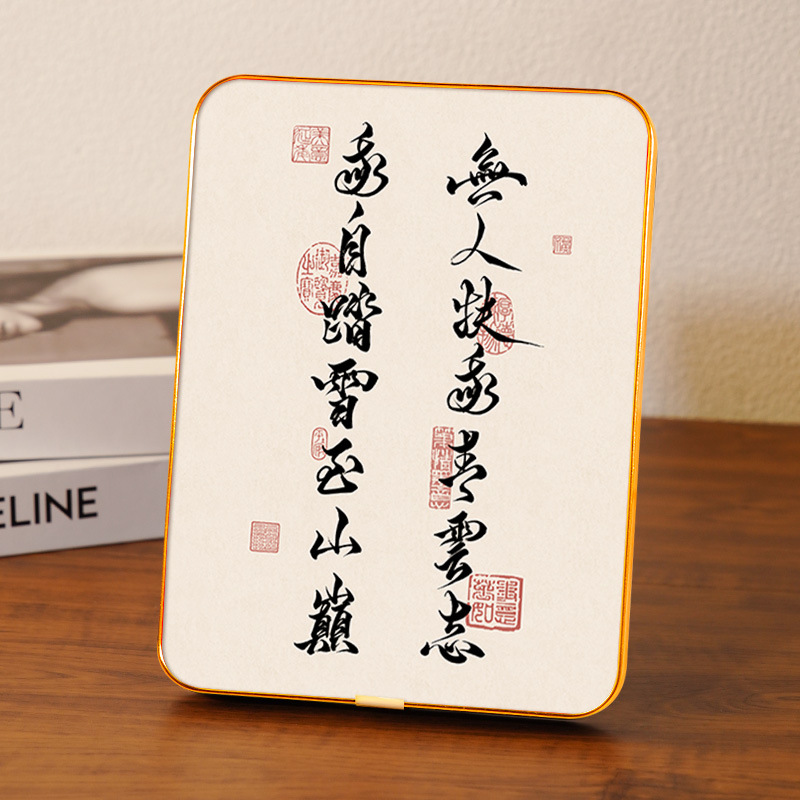 無人扶我青雲志
我自踏雪至山巔
E
ELINE